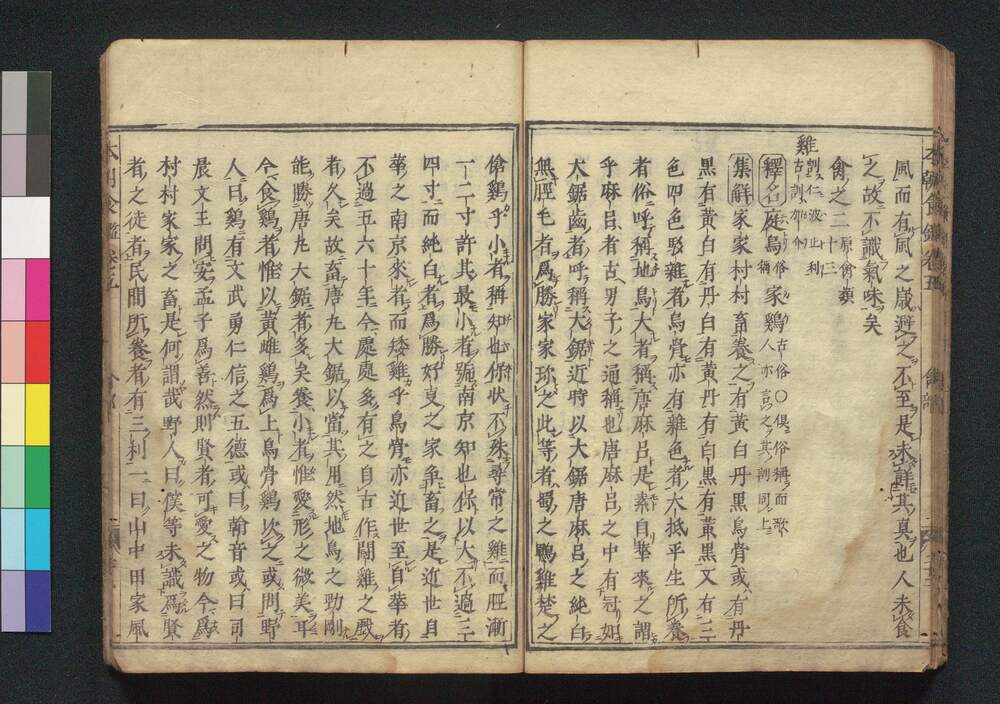 風而有風之嵗避之不至是未詳其真也人未食
之故不識氣味矣
禽之二十三 原禽類
雞 訓仁波止利 古訓加介
釋名 庭鳥 俗稱 家鷄 古俗○俱俗稱而歌人亦言之其訓同上
集解 家家村村畜養之有黄白丹黒烏骨或有丹
黒有黄白有丹白有黄丹有白黒有黄黒又有三
色四色駁雜者烏骨亦有雜色者大抵平生所養
者俗呼稱地鳥大者稱唐麻呂是素自華來之謂
乎麻呂者古男子之通稱也唐麻呂之中有冠如
大鋸齒者呼稱大鋸近時以大鋸唐麻呂之純白
無脛毛者爲勝家家珎之此等者蜀之鴨雞楚之
傖鷄乎小者稱知也保状不殊尋常之雞而脛漸
一二寸許其最小者號南京知也保以大不過三
四寸而純白者爲勝好亊之家爭畜之是近世自
華之南京來者而矮雞乎烏骨亦近世至自華者
不過五六十年今處處多有之自古作鬪雞之戲
者久矣故畜唐丸大鋸以當其用然地鳥之勁剛
能勝唐丸大鋸者多矣養小者惟愛形之微美耳
今食鷄者惟以黄雌鷄爲上烏骨鷄次之或問野
人曰鷄有文武勇仁信之五德或曰翰音或曰司
晨文王問安孟子爲善然則賢者可愛之物今爲
村村家家之畜是何謂哉野人曰僕等未識爲賢
者之徒者民間所養者有三利一曰山中田家風